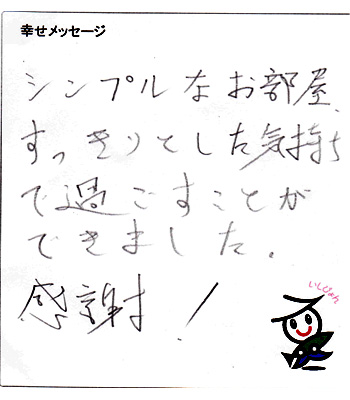 幸せメッセージ
シンプルなお部屋、
すっきりとした気持ち
で過ごすことが
できました。
感謝！
いしじょん